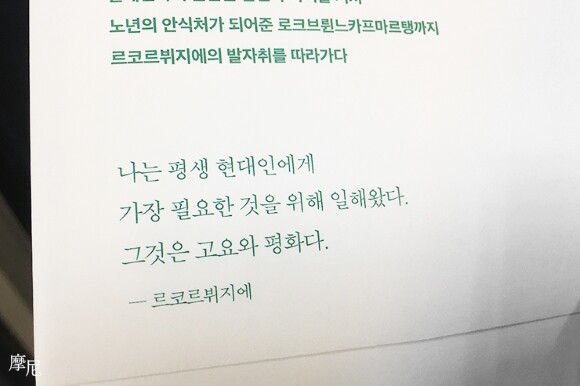 노년의 안식처가 되어준 로크브륀느카프마르탱까지
르코르뷔지에의 발자취를 따라가다
나는 평생 현대인에게
가장 필요한 것을 위해 일해왔다.
그것은 고요와 평화다.
— 르코르뷔지에
摩尼